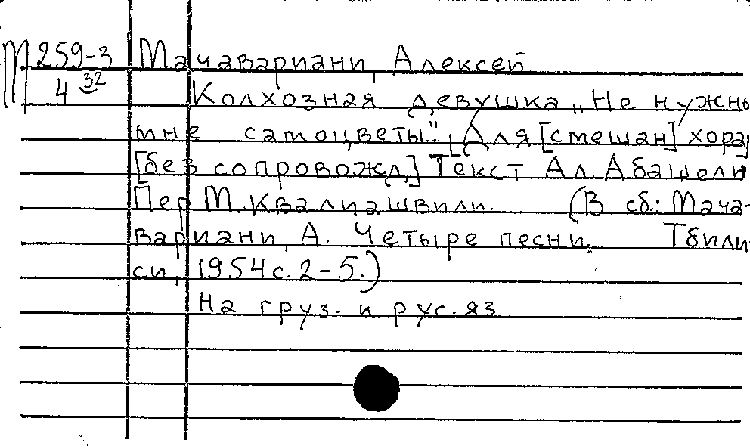 М 259-3 Мачавариани, Алексей
4 32 Колхозная девушка „Не нужны
мне самоцветы". Для [смешан] хора
[без сопровожд.] Текст Ал. Абашели
Пер М. Квалиашвили. (В сб: Мача-
вариани, А. Четыре песни. Тбили
си, 1954 с. 2-5.)
На груз. и рус. яз